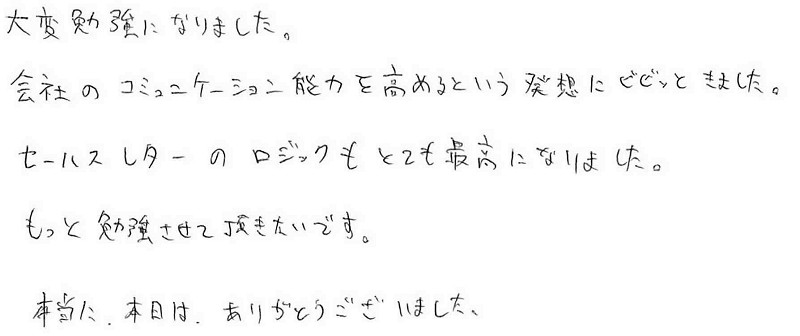 大変勉強になりました。
会社のコミュニケーション能力を高めるという発想にビビッときました。
セールスレターのロジックもとても最高になりました。
もっと勉強させて頂きたいです。
本当に、本日は、ありがとうございました、